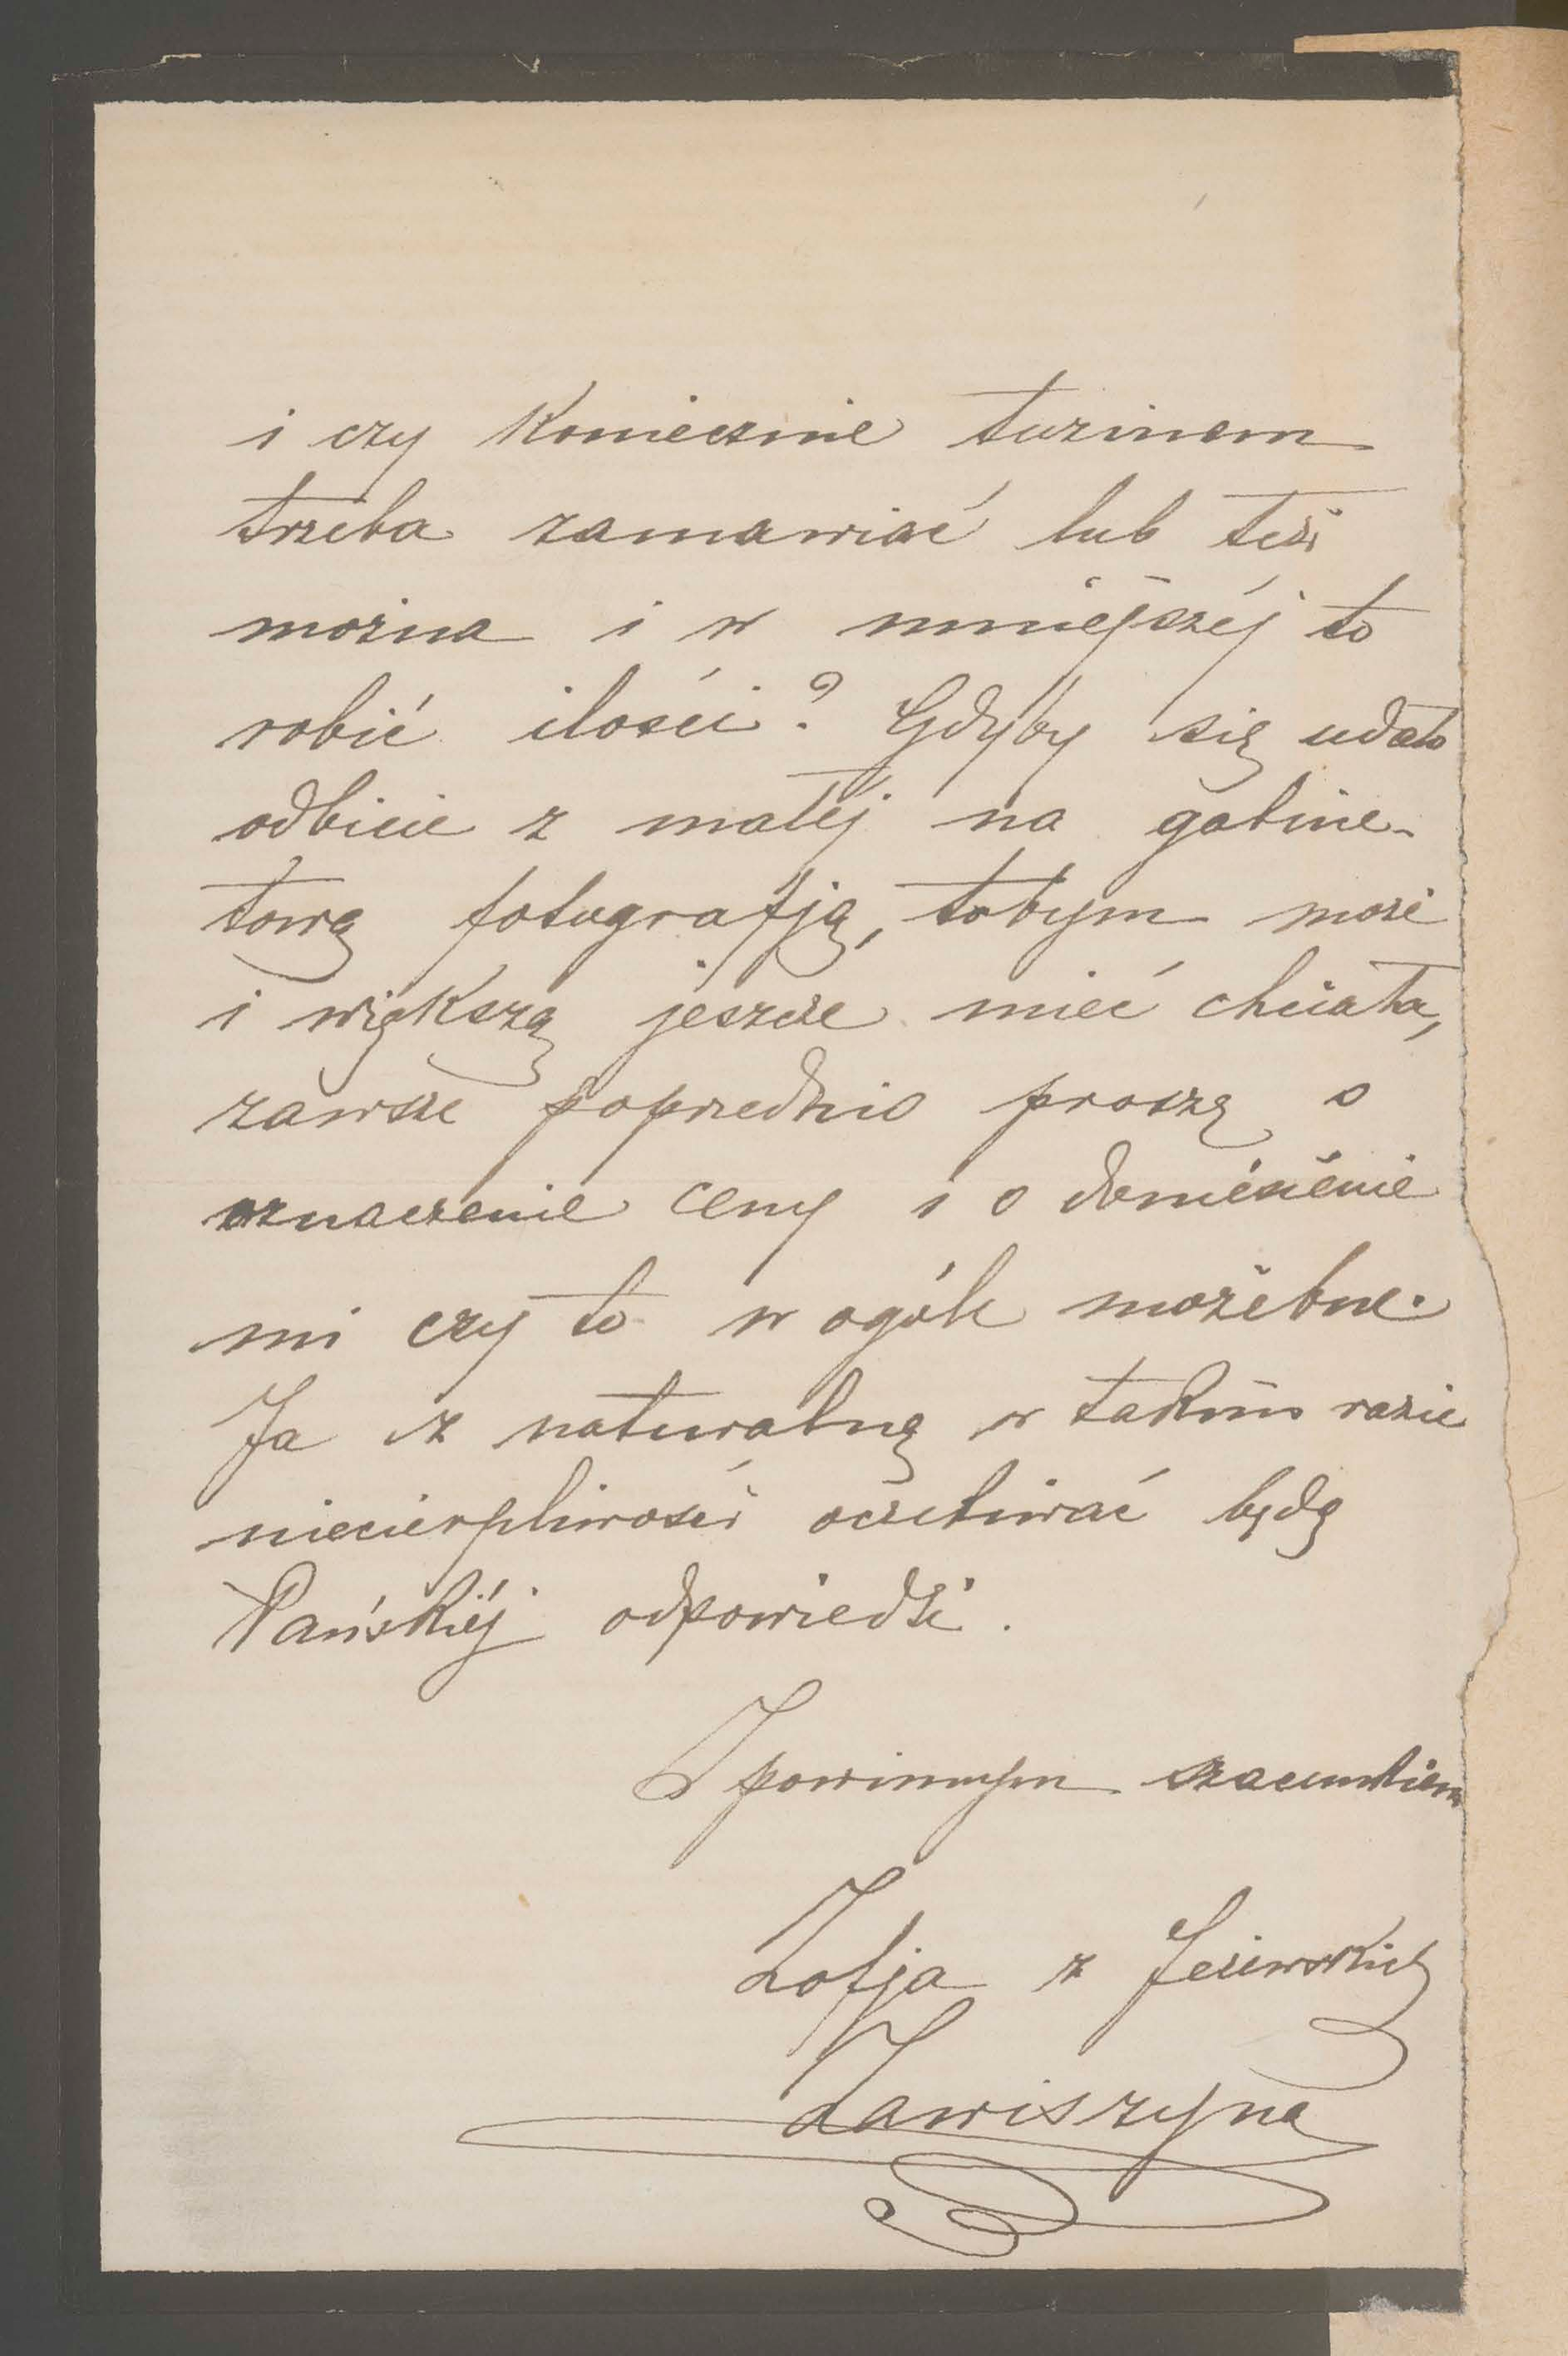 i czy koniecznie tuzinem
trzeba zamawiać lub też
można i w mniejszéj to
robić ilości? Gdyby się udało
odbicie z małéj na gabine-
tową fotografją, tobym może
i większą jeszcze mieć chciała,
zawsze poprzednio proszę o
oznaczenie ceny i o doniesienie
mi czy to w ogóle możebne.
Ja z naturalną w takim razie
niecierpliwości oczekiwać będę
Pańskiéj odpowiedzi.
Z powinnym szacunkiem
Zofja z Jeziewskich
Zawiszyna